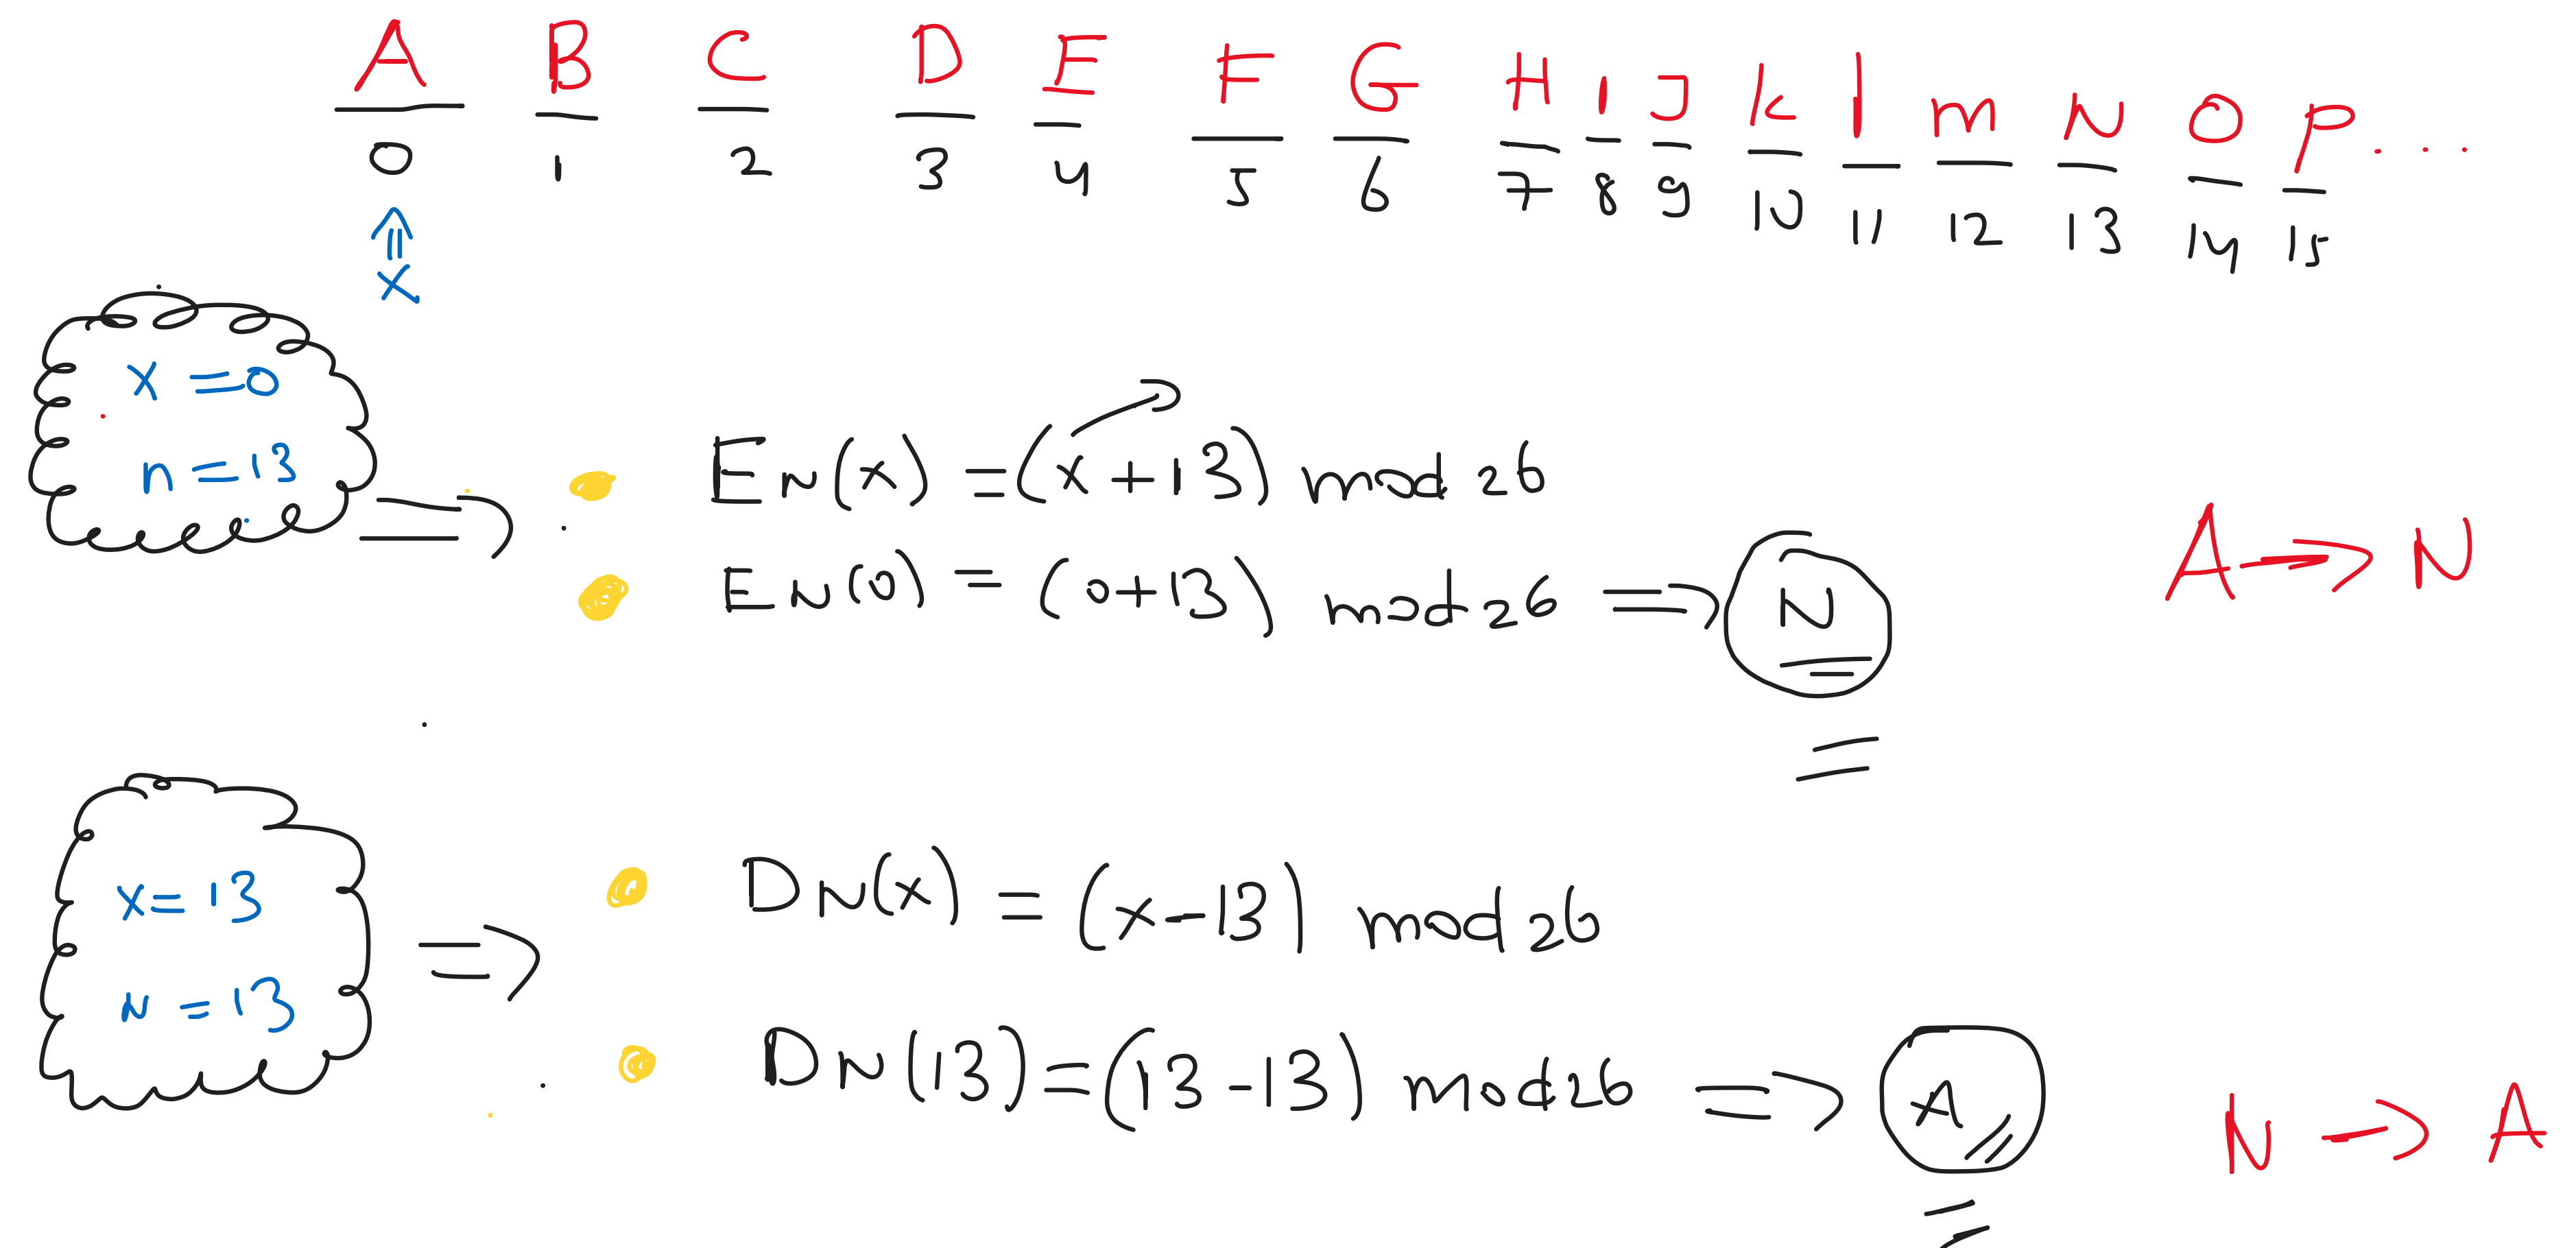 A B C D E F G H I J K l m N O P ....
0 1 2 3 4 5 6 7 8 9 10 11 12 13 14 15
x
x = 0
n = 13
EN(x) = (x + 13) mod 26
EN(0) = (0+13) mod 26 => N
A -> N
x = 13
N = 13
DN(x) = (x-13) mod 26
DN(13) = (13-13) mod 26 => A
N -> A